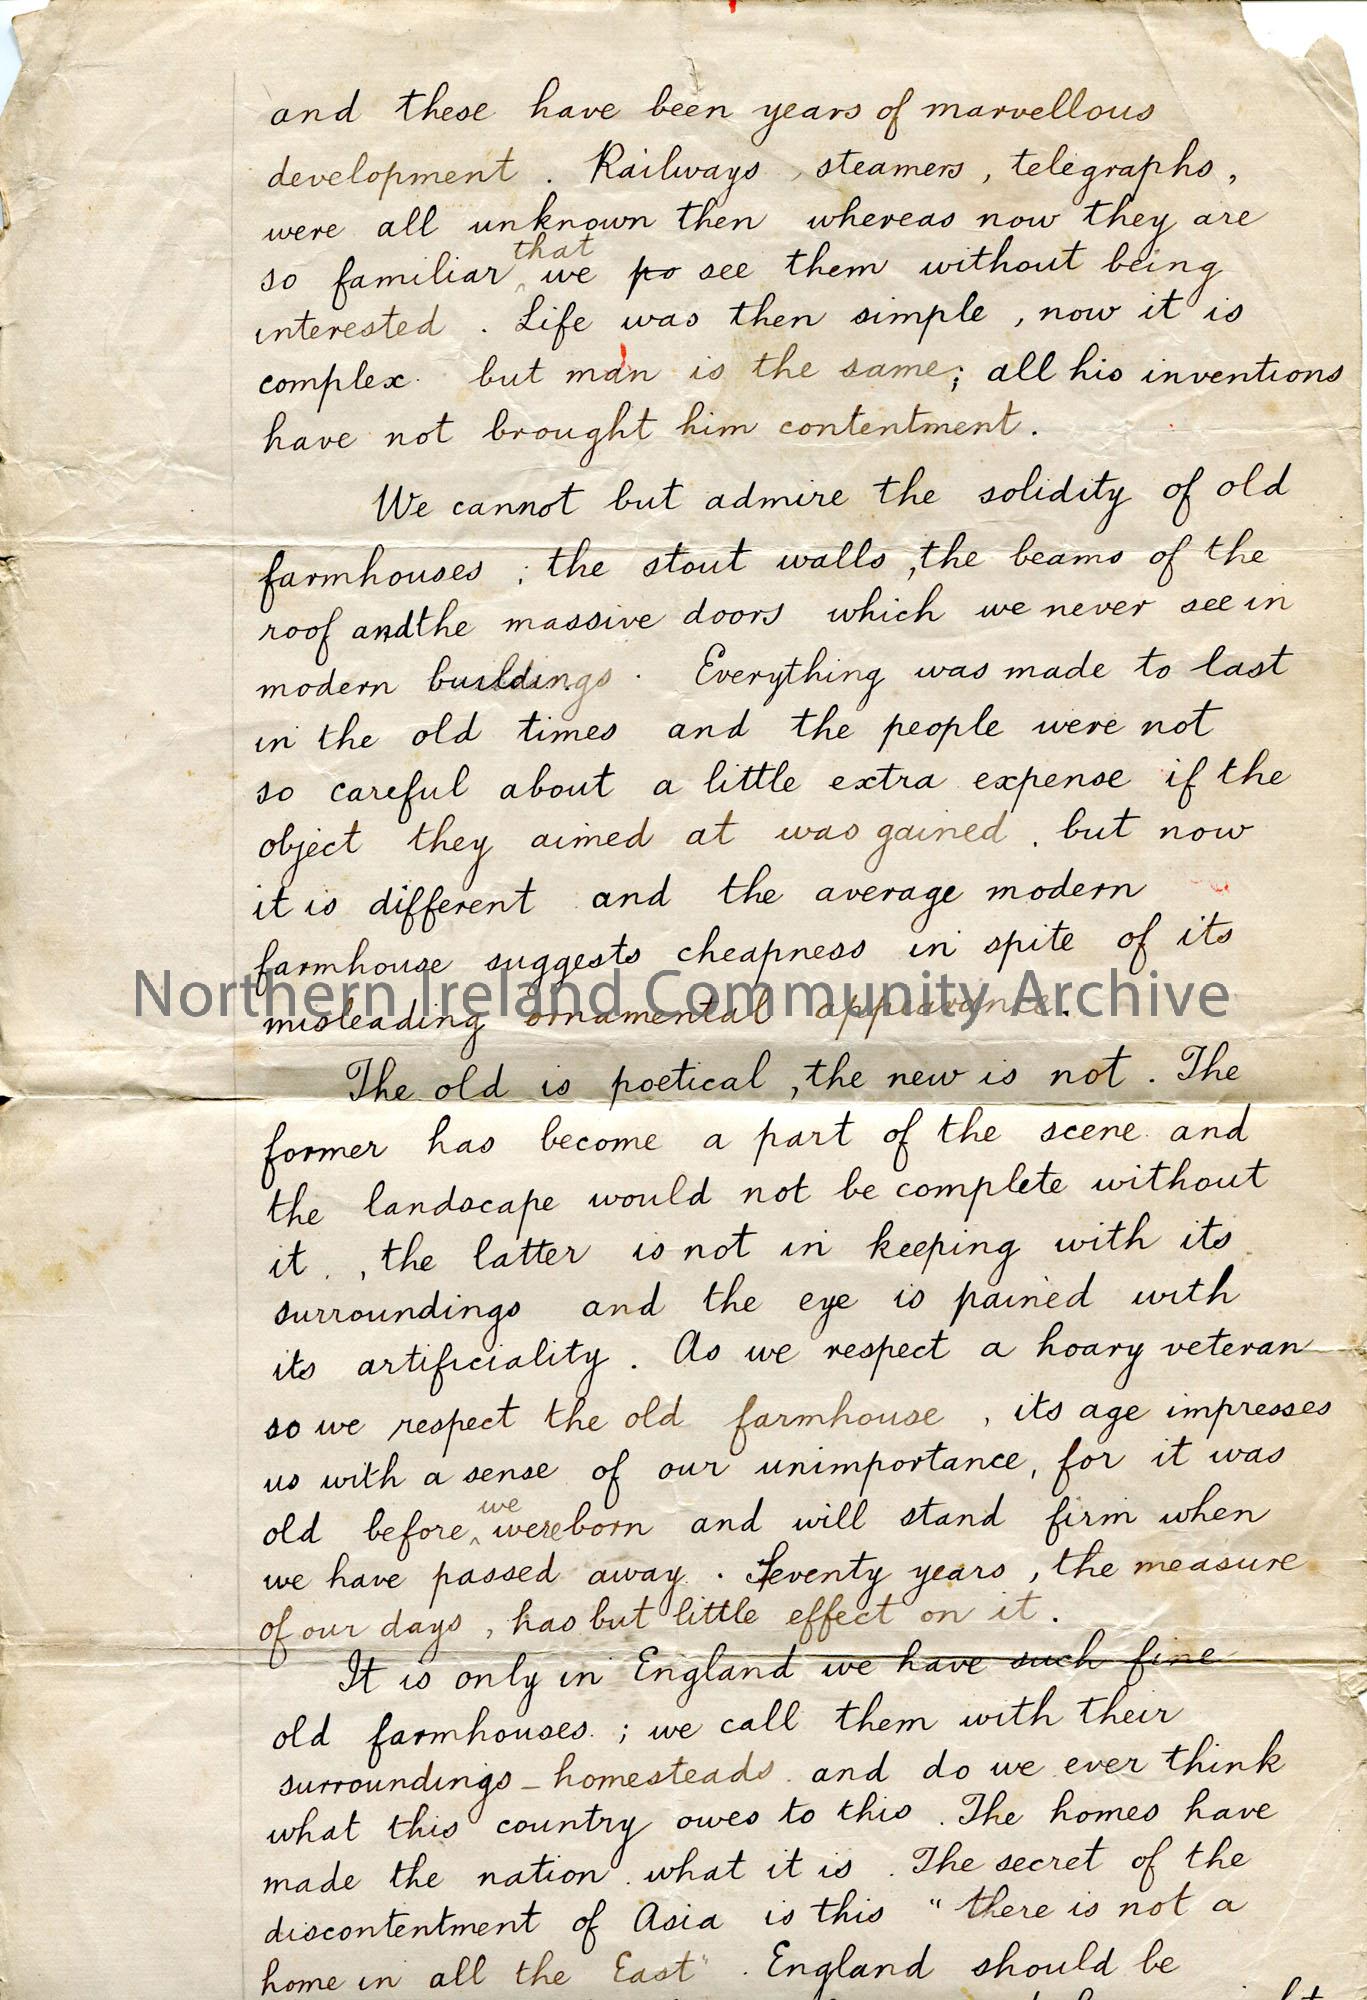 and these have been years of marvellous
development. Railways, steamers, telegraphs,
were all unknown then whereas now they are
that
so familiar ^ we po see them without being
interested. Life was then simple, now it is
complex but man is the same; all his inventions
have not brought him contentment.
We cannot but admire the solidity of old
farmhouses; the stout walls, the beams of the
roof and the massive doors which we never see in
modern buildings. Everything was made to last
in the old times and the people were not
so careful about a little extra expense if the
object they aimed at was gained, but now
it is different and the average modern
farmhouse suggests cheapness in spite of its
Northern Ireland Community Archive
misleading ornamental appearance.
The old is poetical, the new is not. The
former has become a part of the scene and
the landscape would not be complete without
it, the latter is not in keeping with its
surroundings and the eye is pained with
its artificiality. As we respect a hoary veteran
so we respect the old farmhouse, its age impresses
us with a sense of our unimportance, for it was
we
old before ^ were born and will stand firm when
we have passed away. Seventy years, the measure
of our days, has but little effect on it.
It is only in England we have such fine
old farmhouses; we call them with their
surroundings - homesteads and do we ever think
what this country owes to this. The homes have
made the nation what it is. The secret of the
discontentment of Asia is this "there is not a
home in all the East". England should be